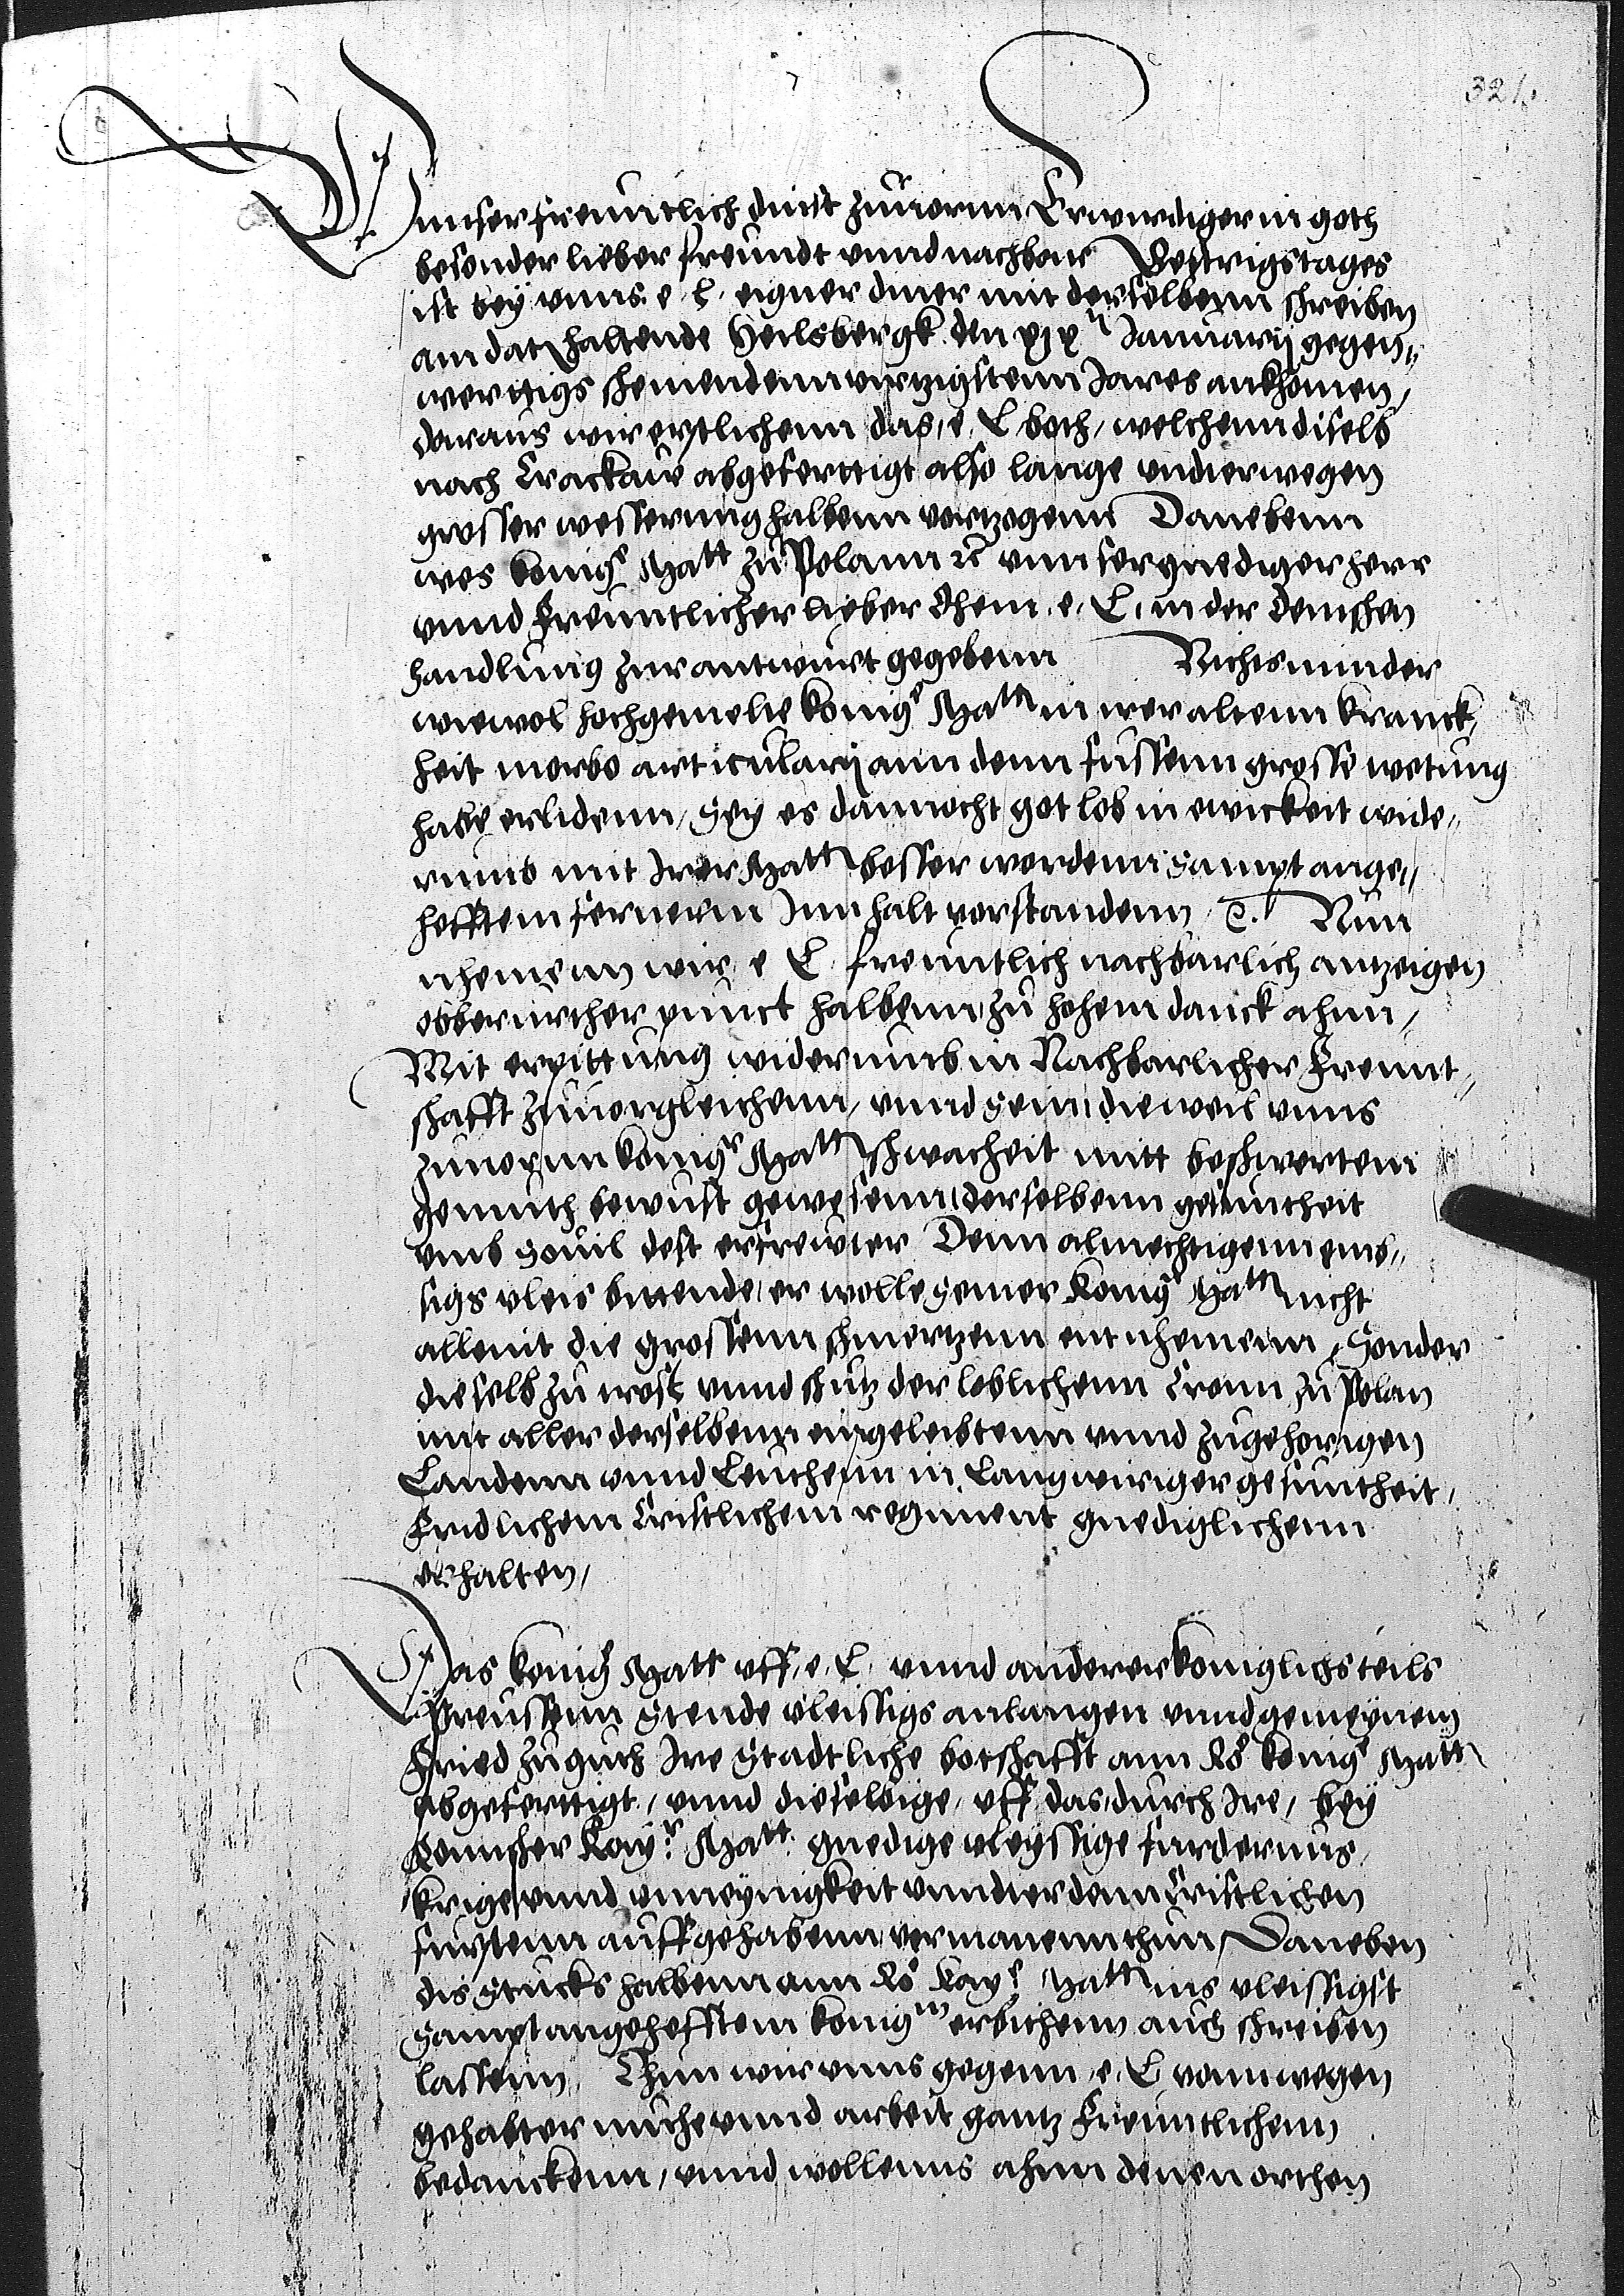 321
Vnnser freuntlich dinst zuuornn Erwirdiger in goth
besonder lieber freundt vnnd nachbar Gestrigs tages
ist bey vnns e. l. eigner diner mit derselbenn schreiben
am dat haltende Heilsbergk den xix Januarij gegen„
wertigs schinendenn virtzigstenn Jares ankhomen,
daraus wir erstlichenn das, e. L. both, welchenn diselb
nach Crackaw abgeferttigt also lange vndterwegen
grosser wesserung halbenn vortzogenn Danebenn
wes konigr Matt zu Polann ec vnnser gnediger herr
vnnd freuntlicher lieber Ohem, e. L. in der Denischen
handlung zur antwurt gegebenn Nichts minder
wiewol hochgemelte konigr Matt in irer altenn kranck„
heit morbo articularij ann denn fussenn grosse wetung
habe erlidenn, Sey es dannocht got lob in ewickeit wide„
rumb mit Irer Matt besser wordenn sampt ange„
hefftem fernerm Innhalt vorstandenn ec. Nun
nhemenn wir, e. L. freuntlich nachbarlich antzeigen
obberurther punct halbenn, zu hohem danck ahnn,
Mit erpittung widerumb in Nachbarlicher freunt„
schafft zuuorgleichenn, vnnd seinn dieweil vnns
zuuornn konigr Matt schwacheit mitt beschwertem
gemuth bewust gewesenn, derselbenn gesuntheit
vmb souil dest erfrewter Denn almechtigenn embs„
sigs vleis bittende, er wolle seiner Konigr Matt nicht
allenit die grossenn schmertzenn entnhemenn, Sonder
dieselb zu trost vnnd schutz der loblichenn Cronn zu Polan
mit aller derselbenn eingeleibtenn vnnd zugehorigen
Landenn vnnd Leuthenn in Langwiriger gesuntheit,
fridlichem Cristlichem regiment gnediglichenn
erhalten,
Das konigr Matt vff, e. L. vnnd anderer koniglichs teils
Preussenn Stende vleissigs anlangen vnnd gemeynem
Fried zu guth Ire Stadtliche botschafft ann Ro konigr Matt
abgeferttigt, vnnd dieselbige, vff das, durch Ire, bey
Romischer Kayr Matt. gnedige vleyssige furdernus,
krige vnnd vneynigkeit vnndter denn Cristlichen
fursten auffgehabenn, vermanenn thun, Daneben
dis Stucks halbenn ann Ro Kayr Matt ins vleissigst
Sampt angehefftem konigm erbithenn auch schreiben
lassenn, Thun wir vnns gegenn, e. L. vonn wegen
gehabter muhe vnnd arbeit gantz freuntlichenn
bedanckenn, vnnd wollenns ahnn denen orthen